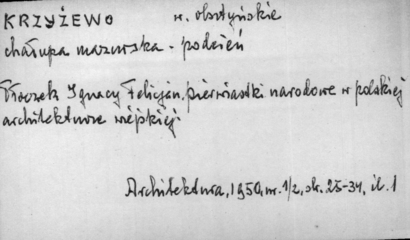 KRZYŻEWO w. olsztyńskie
chałupa mazurska - podcień
Tłoczek Ignacy Felicjan, pierwiastki narodowe w polskiej
architekturze wiejskiej.
Architektura, 1950, nr. 1/2, str. 25-34, il. 1